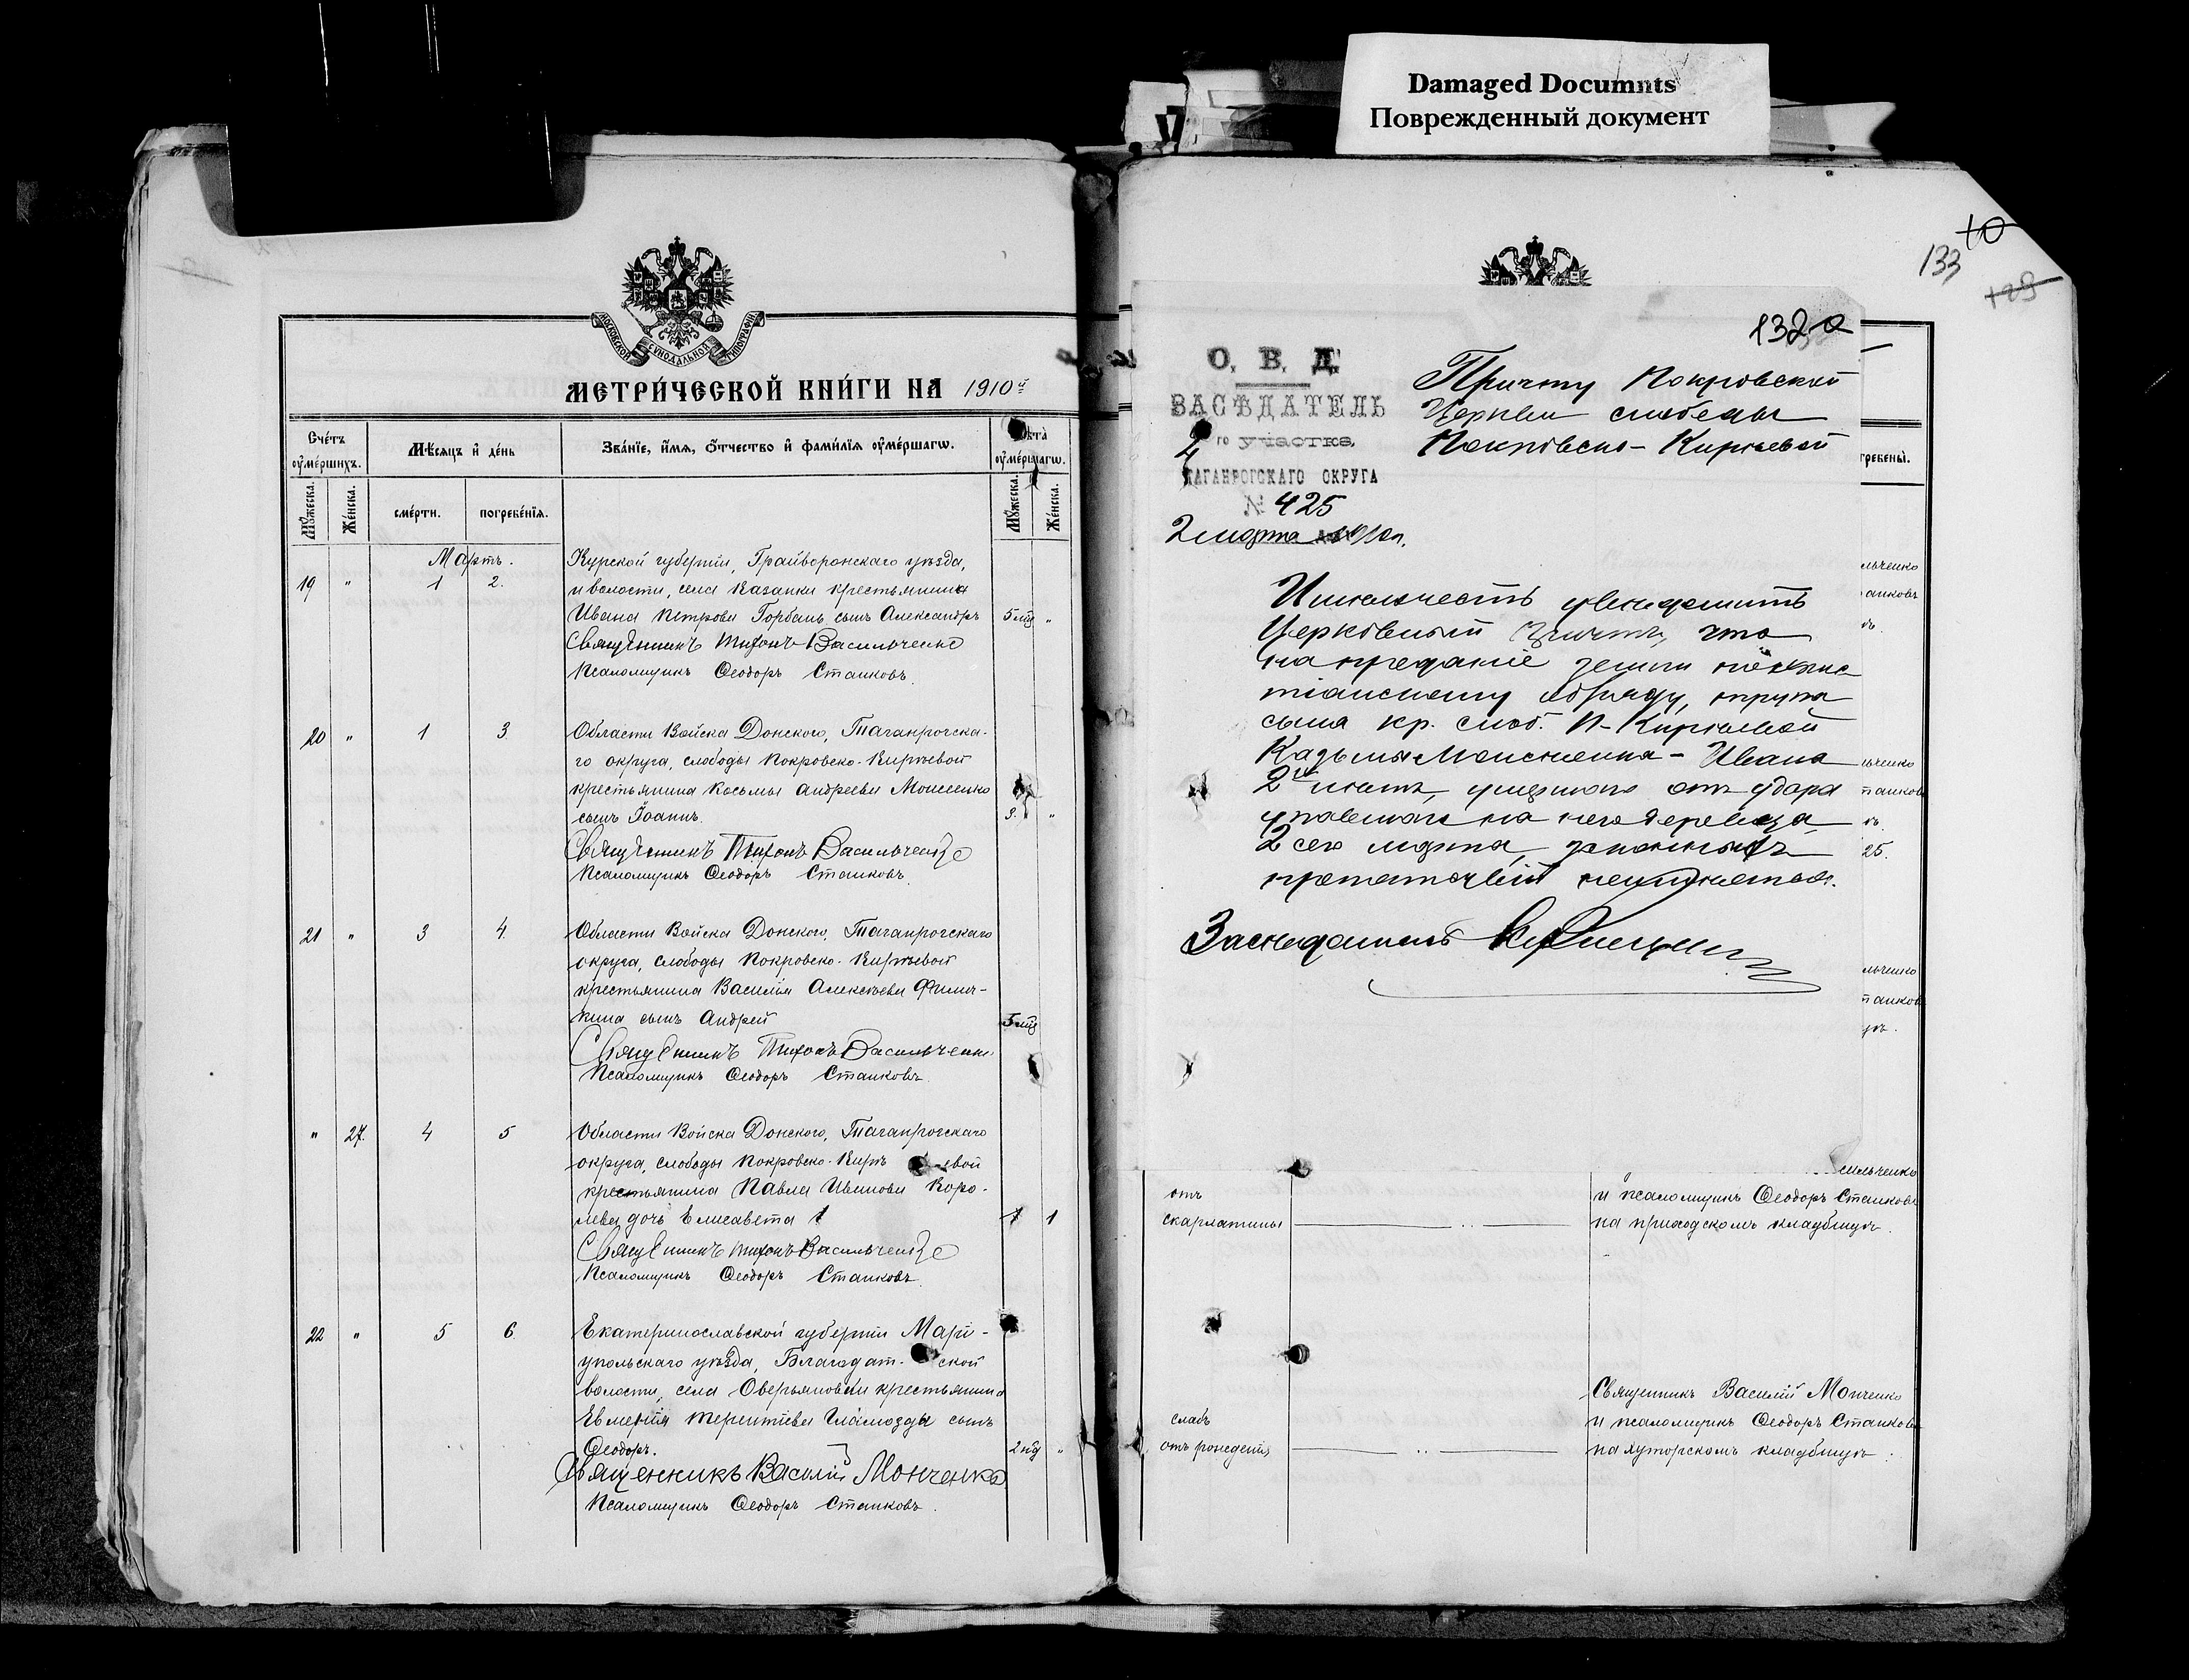 Damaged Documnts
Поврежденный документ
МОСКОВСКОЙ СУНОДАЛЬНОЙ ТИПОГРАФІИ
МЕТРИ́ЧЕСКОЙ КНИ́ГИ НА 1910 г.
Сче́тъ оуме́ршихъ.
Мѣ́сяцъ и де́нь
Зва́нїе, и́мя, о́тчество и фами́лїя оуме́ршагѡ.
Лѣта̀ оуме́ршагѡ.
Мꙋ́жеска.
Же́нска.
сме́рти.
погребе́нїя.
Мꙋ́жеска.
Же́нска.
Мартъ.
19 " 1 2.
Курской губерніи, Грайворонскаго уѣзда,
и волости, села Казанки крестьянина
Ивана Петрова Горбань сынъ Александръ 5 мц "
Священникъ Тихонъ Васильченко
Псаломщикъ Ѳеодоръ Станковъ.
20 " 1 3
Области Войска Донского, Таганрогска-
го округа, слободы Покровско-Кирѣевой
крестьянина Косьмы Андреева Моисеенко
сынъ Іоаннъ. "
Священникъ Тихонъ Васильченко
Псаломщикъ Ѳеодоръ Станковъ.
21 " 3 4.
Области Войска Донского, Таганрогскаго
округа, слободы Покровско-Кирѣевой
крестьянина Василія Алексѣева
кина сынъ Андрей 5 мц
Священникъ Тихонъ Васильченко
Псаломщикъ Ѳеодоръ Станковъ.
" 27. 4 5
Области Войска Донского, Таганрогскаго
округа, слободы Покровско-Кирѣ евой
крестьянина Павла Иванова Коро-
лева дочь Елисавета 1 1
Священникъ Тихонъ Васильченко
Псаломщикъ Ѳеодоръ Станковъ.
22 " 5 6.
Екатеринославской губерніи Марі-
упольскаго уѣзда, Благодат- ской
волости, села Оверьяновки крестьянина
Евменія Терентіева сынъ
Ѳеодоръ. 2 нд "
Священникъ Василій Монченко
Псаломщикъ Ѳеодоръ Станковъ.
10
133
129
132 а
О. В. Д.
ЗАСѢДАТЕЛЬ
2 го участка,
ТАГАНРОГСКАГО ОКРУГА
№ 425
2 марта 1910 г.
Причту Покровской
Церкви слободы
Покровско-Кирѣевой
гребены̀.
Имѣю честь увѣдомить
Церковный Причтъ, что
на преданіе земли по хрис
тіанскому обряду, трупа
сына кр. слоб. П-Кирѣевой
Казьмы Моисѣенка - Ивана
2хъ лѣтъ, умершаго отъ удара
упавшаго на него деревца
2 сего марта, законныхъ
препятствій не имѣется.
Засѣдатель
льченко
анковъ
ьченко
танковъ
25.
льченко
танковъ
сильченко
отъ
скарлатины
и псаломщикъ Ѳеодоръ Станковъ
на приходскомъ кладбищѣ.
слабъ
отъ рожденія
Священникъ Василій Монченко
и псаломщикъ Ѳеодоръ Станковъ
на хуторскомъ кладбищѣ.